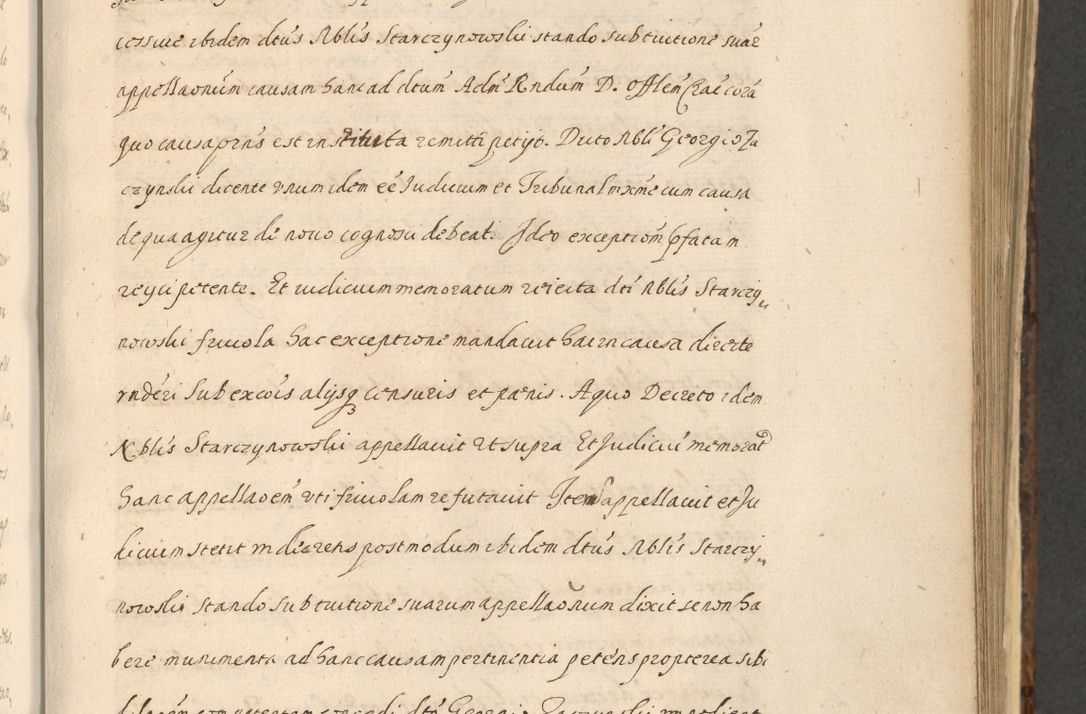 cessive ibidem dtus Nblis Starczynowski stando sub tuitione suar
appellaonum causam hanc ad dtum Adm Rndum D. Offlem Crac cora
quo causa prns est instituta remitti petijt. Dicto Nbli Georgio Za
czynski dicente unum idem ee Iudicium et Tribunal mxme cum causa
de qua agitur de novo cognosci debeat. Ideo exceptiom pfatam
reyci petente. Et iudicium memoratum reiecta dti Nblis Starczy„
nowski frivola hac exceptione mandavit hac in causa directe
rnderi sub excois alijsq censuris et pœnis. A quo Decreto idem
Nblis Starczynowski appellavit ut supra Et Iudiciu memorat
hanc appellaoem uti frivolam refutavit Item appellavit et Iu
dicium stetit in decretis postmodum ibidem dtus Nblis Starczy„
nowski stando sub tuitione suarum appellaonum dixit se non ha
bere munimenta ad hanc causam pertinentia petens propterea sibi